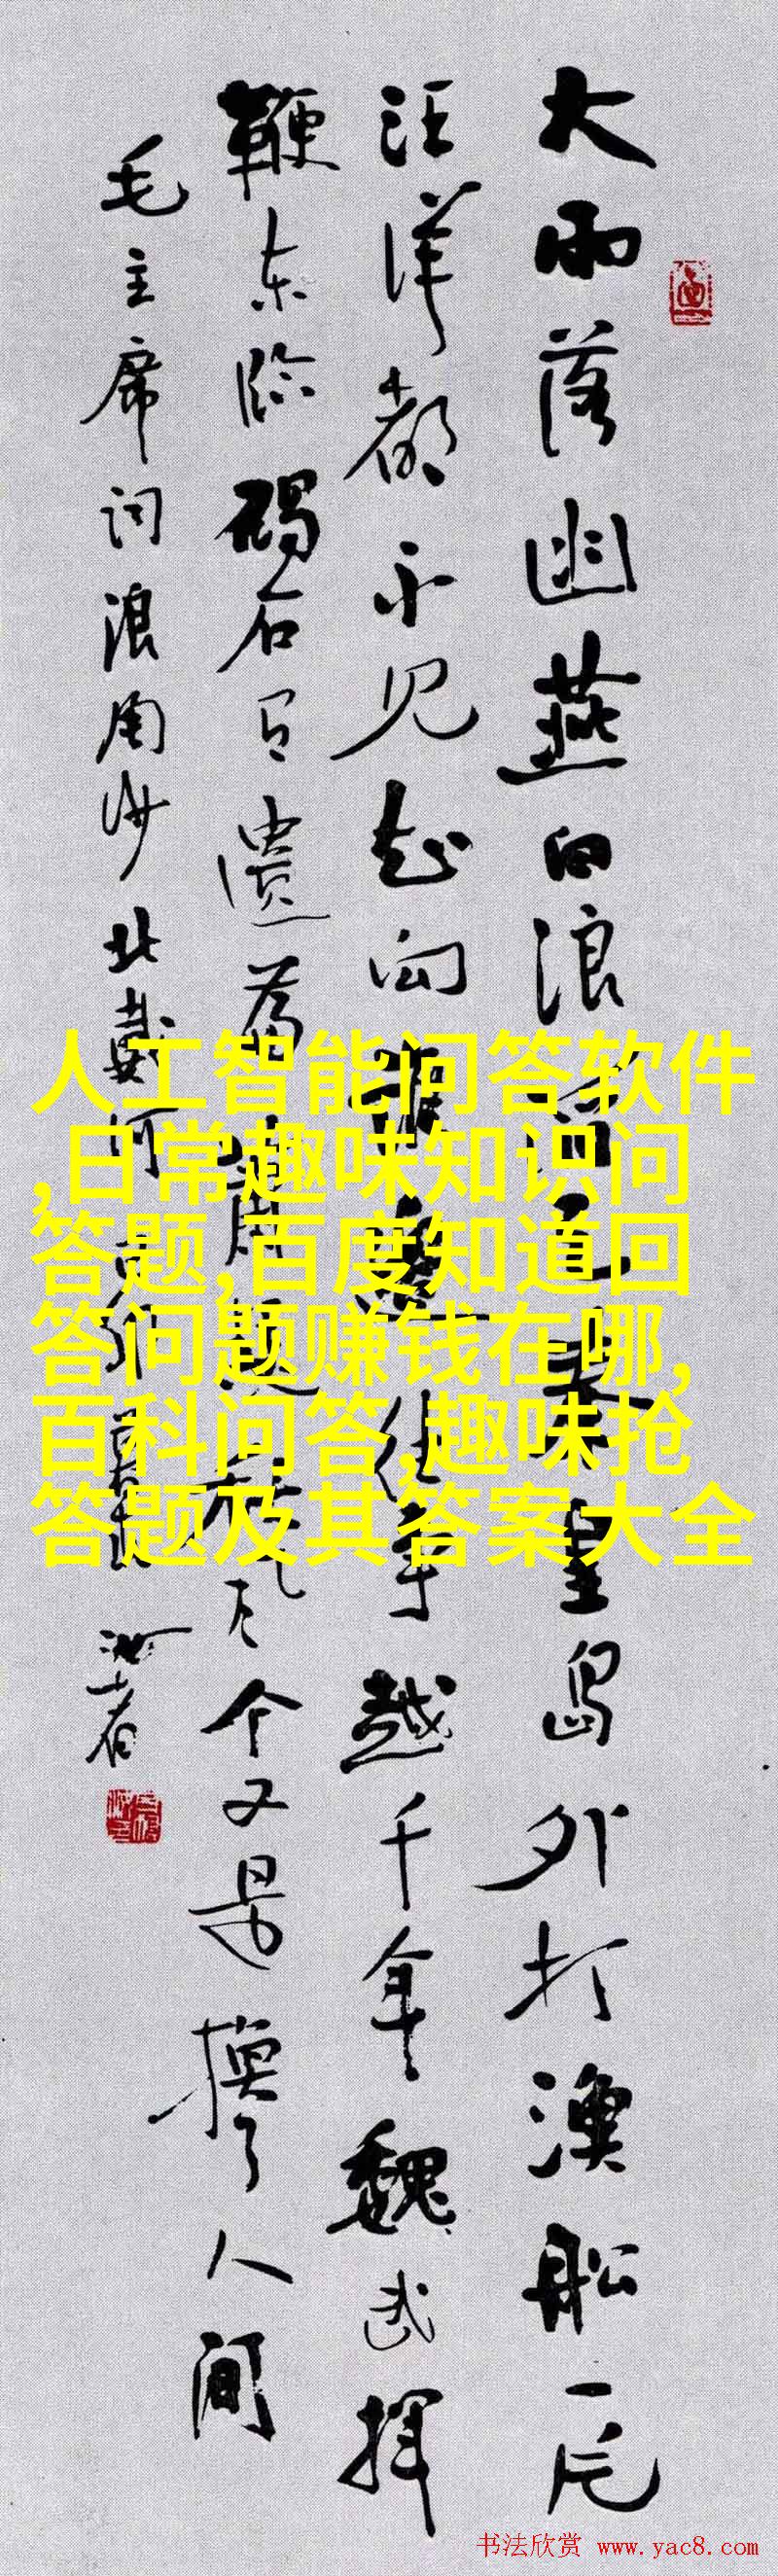 大雨落幽燕白浪滔天秦皇岛外打漁船一片
汪洋都不见知向谁边往事越千年魏武挥
鞭东临碣石有遗篇萧瑟秋风今又是换了人间
毛主席词浪淘沙北戴河
人工智能问答软件
,日常趣味知识问
答题,百度知道回
答问题赚钱在哪,
百科问答,趣味抢
答题及其答案大全
书法欣赏 www.yac8.com